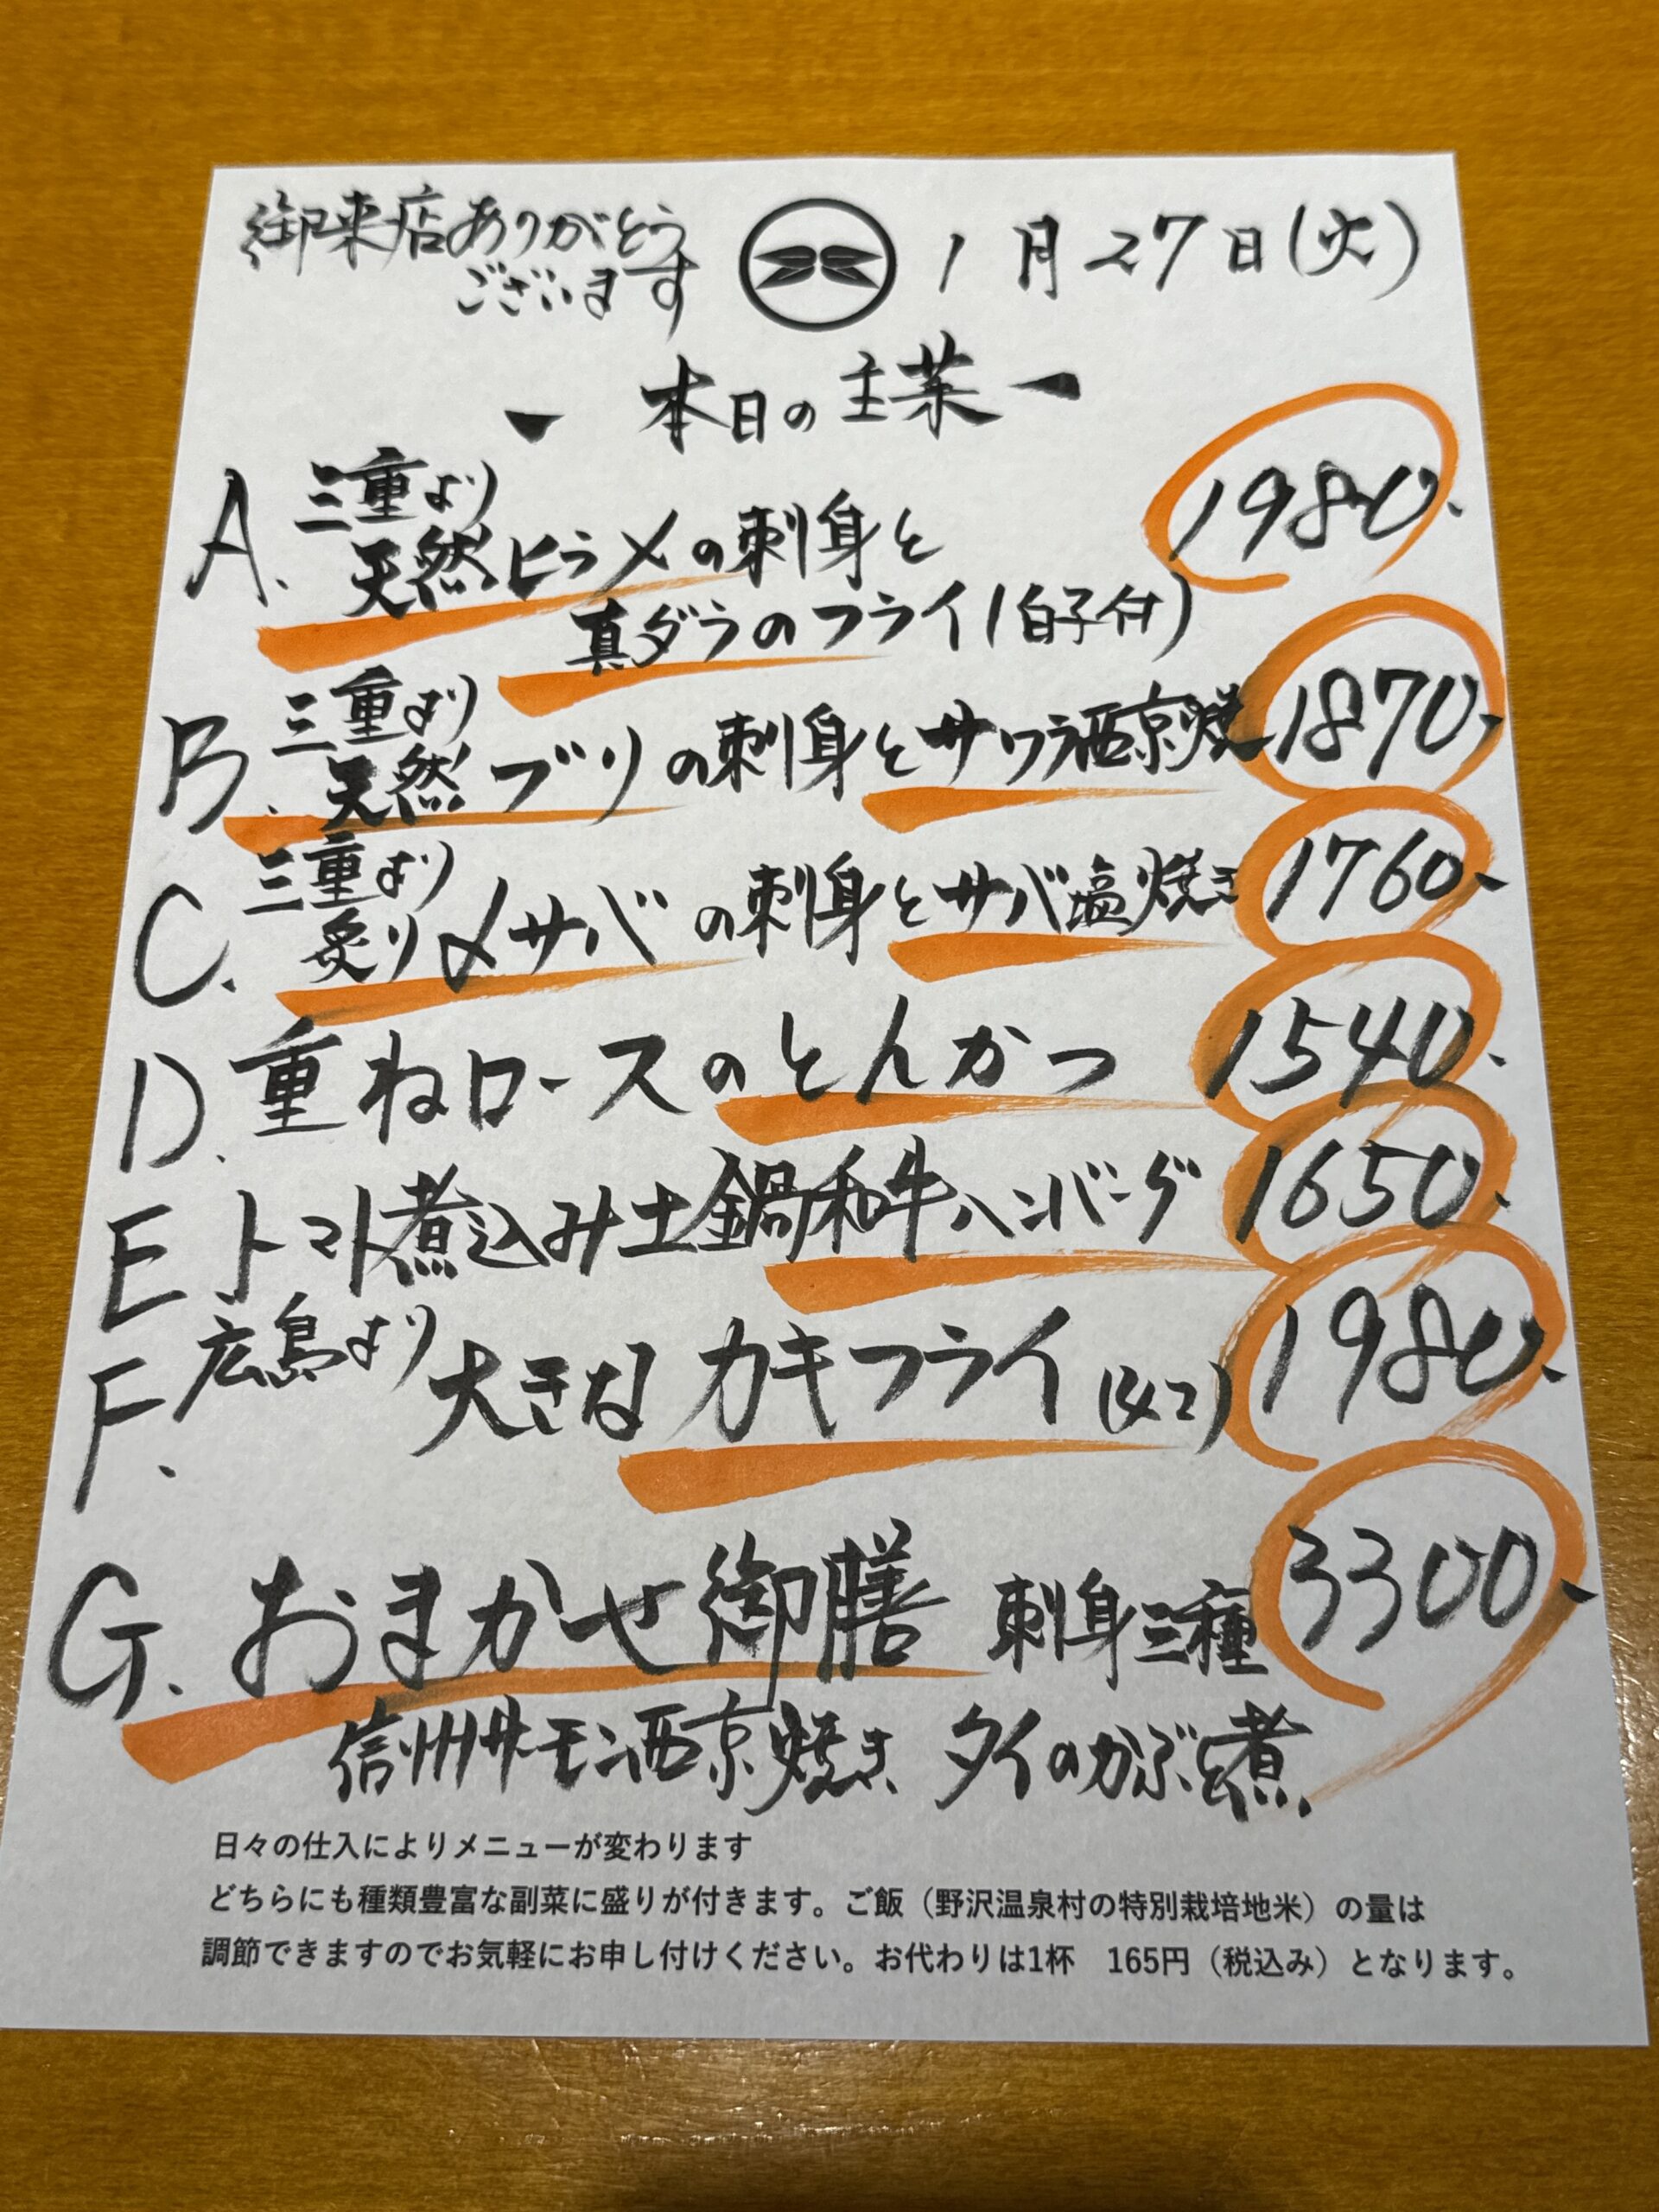 御来店ありがとう
ございます
1月27日(火)
ー 本日の主菜 ー
A. 三重より
天然ヒラメの刺身と
真ダラのフライ(白子付)
1980.
B. 三重より
天然ブリの刺身とサワラ西京焼 1870.
C. 三重より
炙り〆サバの刺身とサバ塩焼き 1760.
D. 重ねロースのとんかつ 1540.
E トマト煮込み土鍋和牛ハンバーグ 1650.
F. 広島より 大きなカキフライ(4コ) 1980.
G. おまかせ御膳 刺身三種 3300.
信州サーモン西京焼き タイのかぶと煮
日々の仕入によりメニューが変わります
どちらにも種類豊富な副菜に盛りが付きます。ご飯（野沢温泉村の特別栽培地米）の量は
調節できますのでお気軽にお申し付けください。お代わりは1杯 165円（税込み）となります。